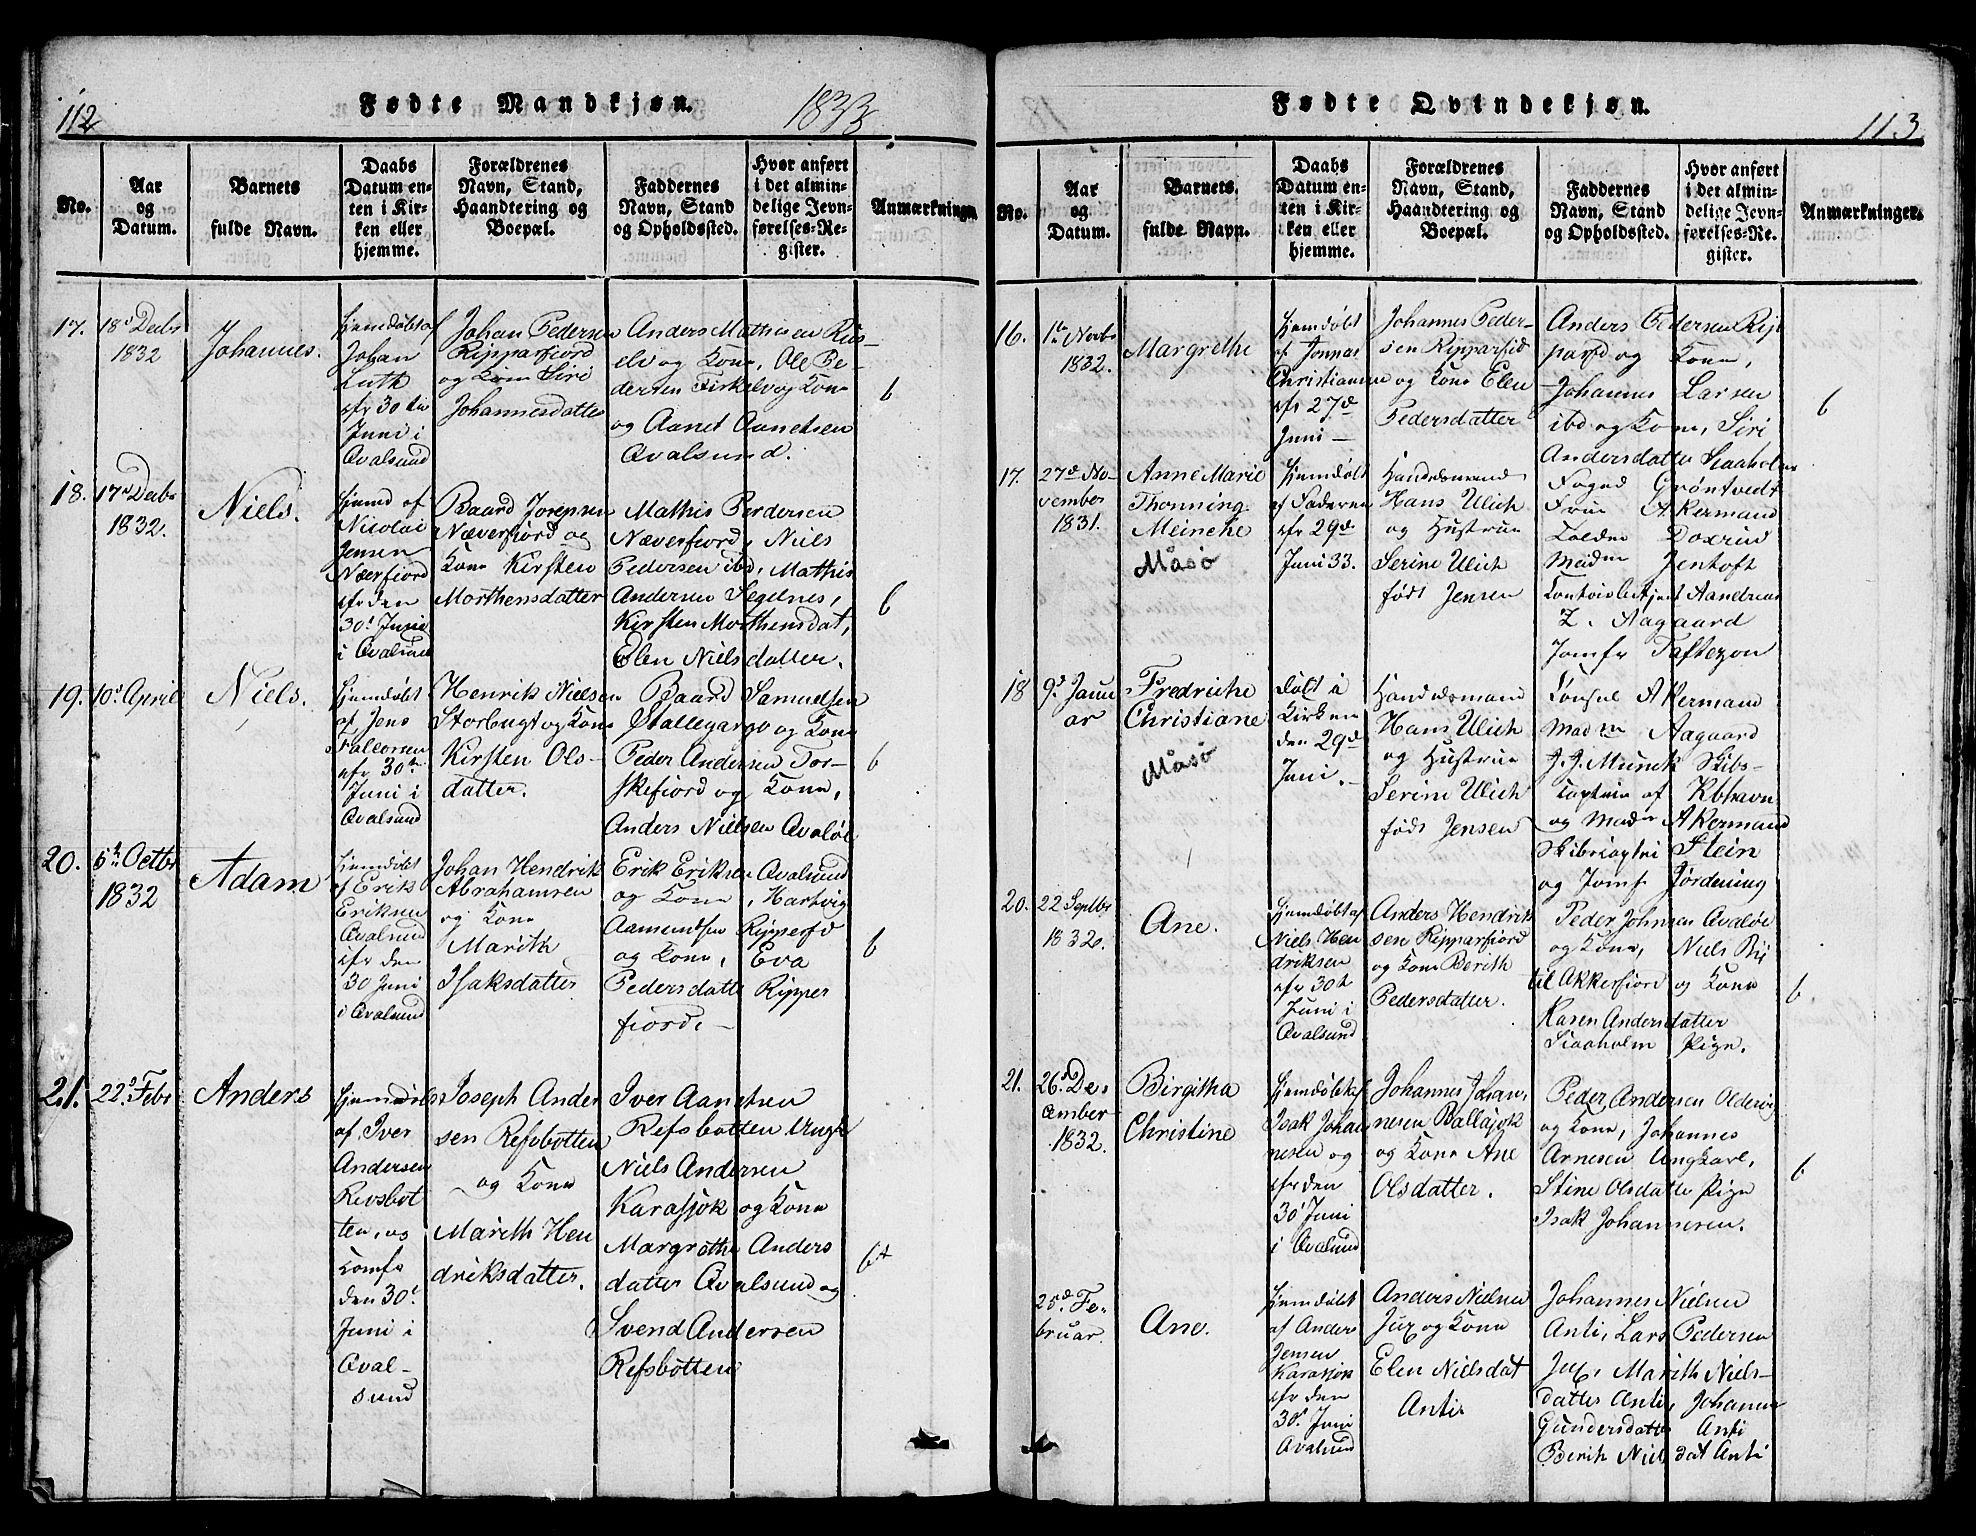 112
Fødte Mandkjøn.
1833
No.
Aar
og
Datum.
Barnets
fulde Navn.
Daabs
Datum en-
ten i Kir-
ken eller
hjemme.
Forældrenes
Navn, Stand,
Haandtering og
Boepæl.
Faddernes
Navn, Stand
og Opholdssted.
Hvor anført
i det almin-
delige Jevn-
førelses-Re-
gister.
Anmærkninge
17.
18d Decbr
1832
Johannes.
hjemdøbt af
Johan
Luth
cfr 30 te
Juni i
Qvalsund
Johan Pedersen
Ripparfiord
og Kone Siri
Johannesdatter
Anders Mathisen Rus-
elv og Kone, Ole Pe-
dersen Firkelv og Kone
og Aanet Aanetsen
Qvalsund.
6
18.
17d Decbr
1832.
Niels.
hjemd af
Nicolai
Jensen
Næverfiord
cfr den
30d Juni
i Qvalsund
Baard Josepsen
Næverfiord og
Kone Kirsten
Morthensdatter
Mathis Pedersen
Næverfiord, Niels
Pedersen ibd, Mathis
Andersen Segelnes,
Kirsten Morthensdat,
Elen Nielsdatter.
6
19.
10d April
Niels.
hjemdøbt
af Jens
cfr 30te
Juni i
Qvalsund
Henrik Nielsen
Storbugt og Kone
Kirsten Ols-
datter.
Baard Samuelsen
Stallegargo og Kone
Peder Andersen Tor-
skefiord og Kone,
Anders Nielsen Qvaløe
6
20.
5te Octbr
1832
Adam
hjemdøbt
af Erik
Eriksen
Qvalsund
cfr den
30 Juni
i Qvalsund
Johan Hendrik
Abrahamsen
og Kone
Marith
Isaksdatter
Erik Eriksen Qvalsund
og Kone, Hartvig
Aamundsen Ripperfd
og Kone, Eva
Pedersdatte Ripper
fiord. -
6
21.
22d Febr
Anders
hjemdøbt
af Iver
Andersen
Revsbot
ten, og
Comfr
den 30d
Juni i
Qval-
sund
Joseph Ander
sen Refsbotten
og Kone
Marith Hen
driksdatter.
Iver Aanetsen
Refsbotten Ungk
Niels Andersen
Karasjok og Kone
Margrethe Anders
datter Qvalsund og
Svend Andersen
Refsbotten
6+
Fødte Qvindekjøn.
113
No.
Aar
og
Datum.
Barnets.
fulde Navn.
Daabs
Datum en-
ten i Kir-
ken eller
hjemme.
Forældrenes
Navn, Stand,
Haandtering og
Boepæl.
Faddernes
Navn, Stand
og Opholdssted.
Hvor anført
i det almin-
delige Jevn-
førelses-Re-
gister.
Anmærkninger.
16.
1te Novbr
1832.
Margrethe
hjemdøbt
af Jonnas
Christiansen
cfr 27de
Juni -
Johannes Peder-
sen Ripparfiod
og Kone Elen
Pedersdatter
Anders Pedersen Rip
parfd og Kone,
Johannes Larsen
ibd og Kone, Siri
Andersdatter Staaholm
6
17.
27de No-
vember
1831.
Anne Marie
Thonning
Meincke
Måsø
hjemdøbt
af Faderen
cfr 29de
Juni 33.
Handelsmand
Hans Ulich
og Hustrue
Serine Ulich
født Jensen
Foged Grøntvedt
Frue Akermand
Tolder Doxrud
Madm Jentoft
Contoirbetjent Aandreas
Z. Aagaard
Jomfr Taftezon
18
9d Janu
ar
Fredricke
Christiane
Måsø
Døbt i
Kirken
den 29de
Juni.-
Handelsmand
Hans Ulich
og Hustrue
Serine Ulich
født Jensen
Consul Akermand
Madm Aagaard
J. J. Munck Skibs-
Captein af Kbhavn
og Madm Akermand
Skibscaptei Stein
og Jomf Jordening
20.
22 Septbr
1832.
Ane.
hjemdøbt af
Niels Hen
driksen
cfr 30te
Juni i
Qvalsund
Anders Hendrik
sen Ripparfiord
og Kone Berith
Pedersdatter.
Peder Johnsen Qvaløe
og Kone, Niels By
til Akkerfiord og Kone
Karen Andersdatter
Staaholm Pige.
6.
21.
26d De-
cember
1832.
Birgitha
Christine
hjemdøbt af
Isak Johan
nesen og
cfr den
30d Juni
i Qvalsund
Johannes Johan
nesen Ballasjok
og Kone Ane
Olsdatter.
Peder Andersen Oldervig
og Kone, Johannes
Arnesen Ungkarl,
Stine Olsdatte Pige
Isak Johannesen.
6
25de Fe-
bruar.
Ane.
hjemdøbt
af Anders
Jensen
Karasjok
cfr den
30d Juni
Qvalsund
Anders Nielsen
Jux og Kone
Elen Nielsdat
Anti
Johannes Nielsen
Anti, Lars Pedersen
Jux, Marith Niels-
datter Anti, Johanne
Gundersdatter Anti
Berith Niels dat Anti